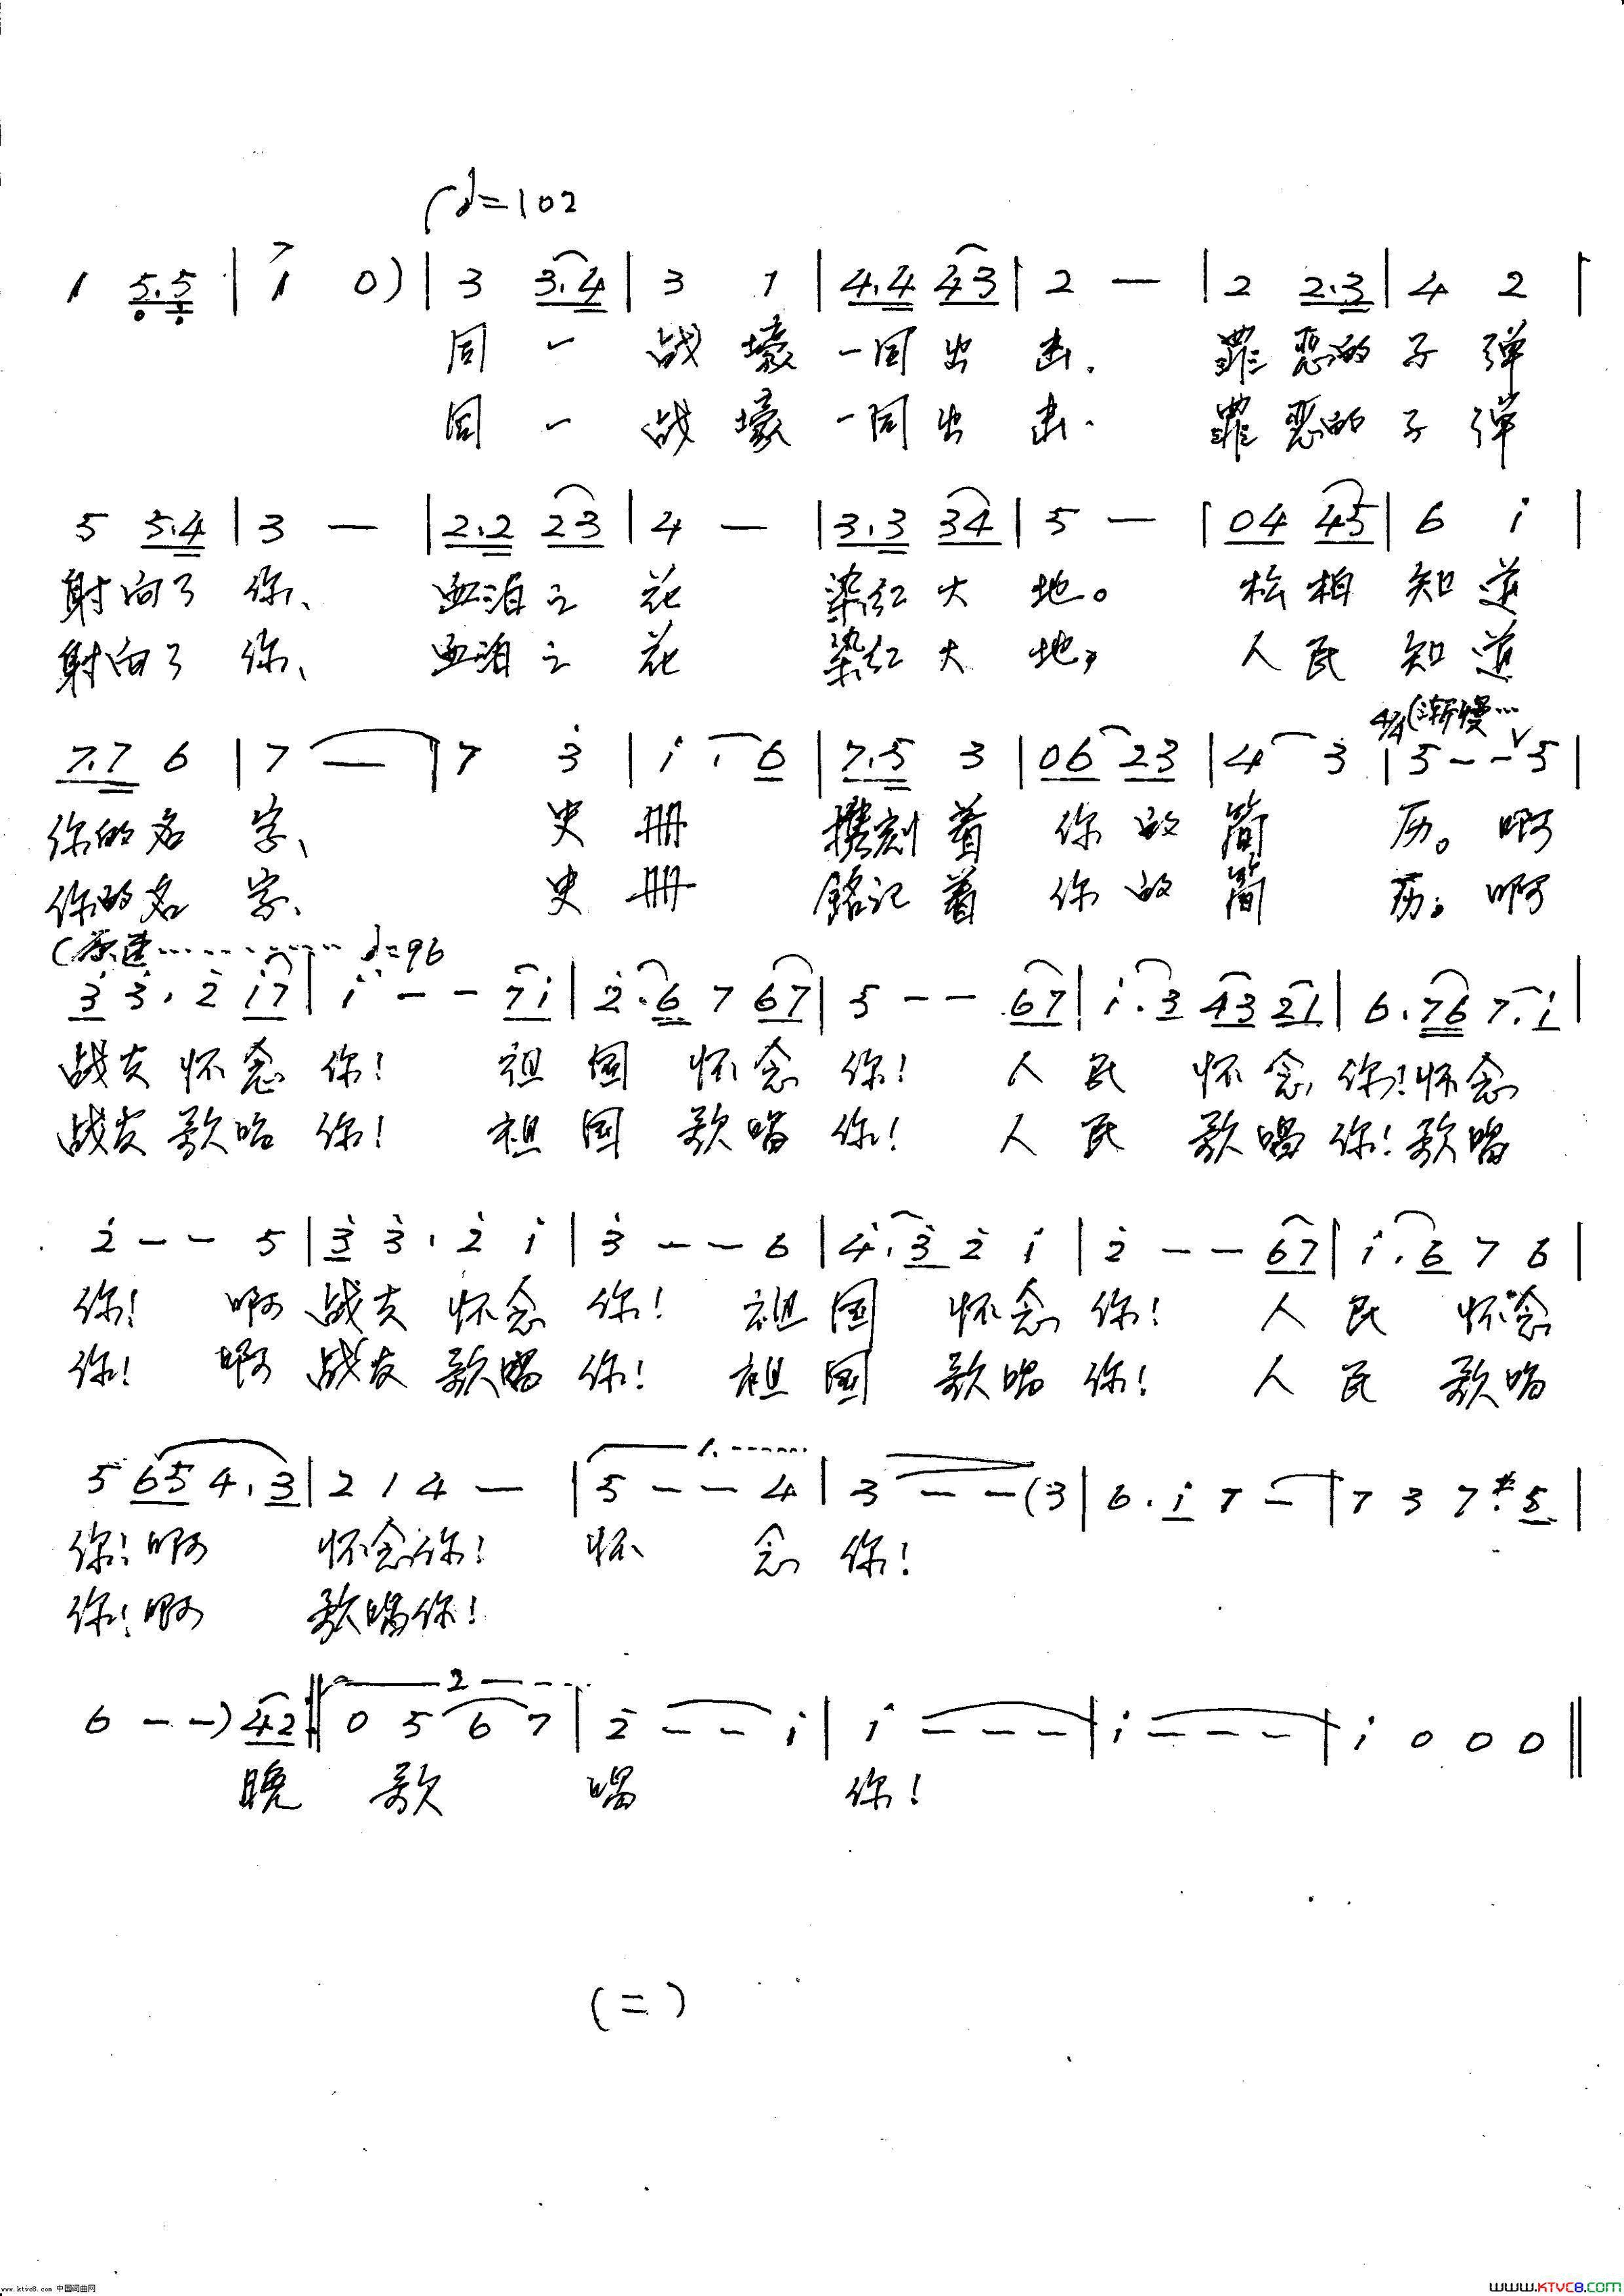 ♩=102
1 5.5 | 1 0) | 3 3.4 | 3 1 | 4.4 43 | 2 — | 2 2.3 | 4 2 |
同 一 战 壕 一同 出 击. 罪 恶的 子 弹
同 一 战 壕 一同 出 击. 罪 恶的 子 弹
5 5.4 | 3 — | 2.2 23 | 4 — | 3.3 34 | 5 — | 04 45 | 6 i |
射 向了 你、 血泊之 花 染红大 地。 松柏 知 道
射 向了 你、 血泊之 花 染红大 地, 人民 知 道
4/4(渐慢…
7.7 6 | 7 — | 7 3 | i . 6 | 7.5 3 | 06 23 | 4 3 | 5 - - 5 |
你的名 字、 史 册 刻着 你的 简 历。 啊
你的名 字、 史 册 銘记着 你的 简 历; 啊
(原速………… ♩=96
3 3 . 2 i7 | i - - 7i | 2 . 6 7 67 | 5 - - 67 | i . 3 43 21 | 6 . 76 7 . 1 |
战友 怀念 你! 祖国 怀念 你! 人民 怀念 你!怀念
战友 歌唱 你! 祖国 歌唱 你! 人民 歌唱 你!歌唱
2 - - 5 | 3 3 . 2 i | 3 - - 6 | 4 . 3 2 i | 2 - - 67 | i . 6 7 6 |
你! 啊 战友 怀念 你! 祖国 怀念 你! 人民 怀念
你! 啊 战友 歌唱 你! 祖国 歌唱 你! 人民 歌唱
1. ……
5 65 4 . 3 | 2 1 4 — | 5 - - 4 | 3 - - (3 | 6 . i 7 - | 7 3 7 . #5 |
你!啊 怀念你! 怀 念 你!
你!啊 歌唱你!
2 — - - -
6 - -) 42 :‖ 0 5 6 7 | 2 - - i | i - - - | i - - - | i 0 0 0 ‖
晚 歌 唱 你!
(二)
www.ktvc8.com 中国词曲网
www.KTVC8.COM